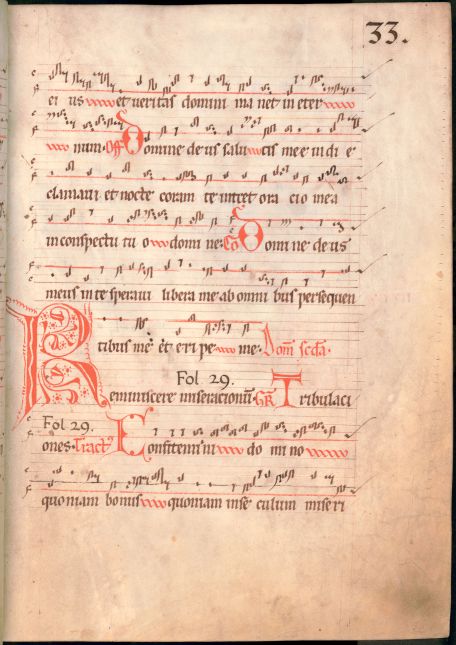 33.
ei us et ueritas domini ma net in eter
num. Off Domine de us salu tis mee in di e
clamaui et nocte coram te intret ora cio mea
in conspectu tu o domi ne. Co Domi ne de us
meus in te speraui libera me ab omni bus persequen
tibus me et eri pe me. Dom scda.
Fol 29.
Reminiscere miseracionum GR Tribulaci
Fol 29.
ones. Tract Confitemini do mi no
quoniam bonus quoniam in se culum miseri